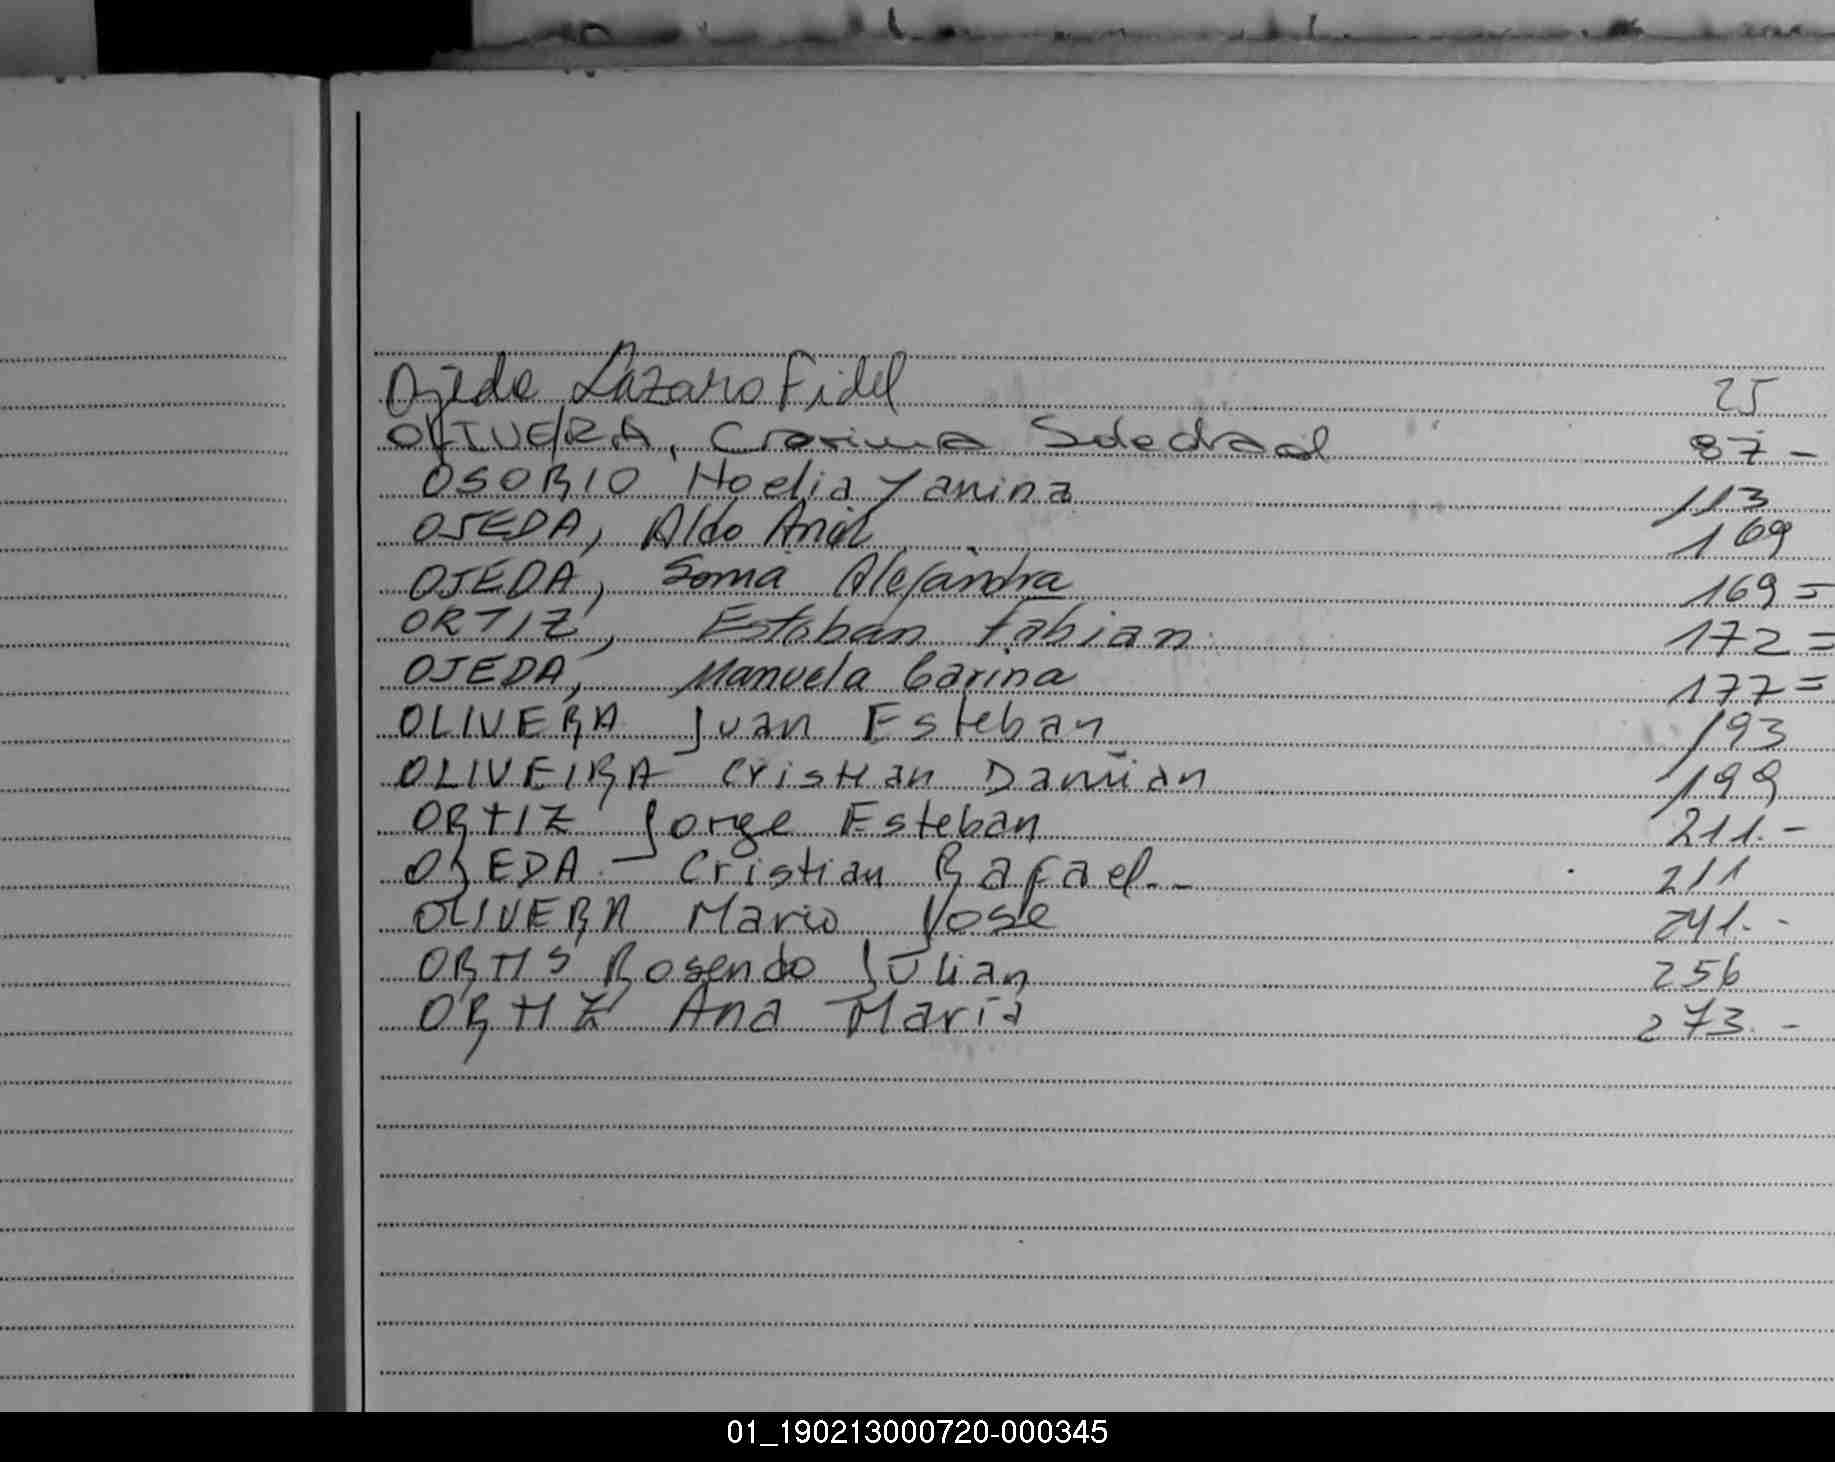 Ojeda Lazaro Fidel 25
OLIVERA, Soledad 87 -
OSORIO Noelia Yanina 113
OJEDA, Aldo Ariel 169
OJEDA, Sonia Alejandra 169 =
ORTIZ, Esteban Fabian 172 =
OJEDA, Manuela Carina 177 =
OLIVERA Juan Esteban 193
OLIVEIRA Cristian Damián 199
ORTIZ Jorge Esteban 211.-
OJEDA Cristian Rafael-- 211
OLIVERA Mario José 241.-
ORTIS Rosendo Julian 256
ORTIZ Ana Maria 273.-
01_190213000720-000345